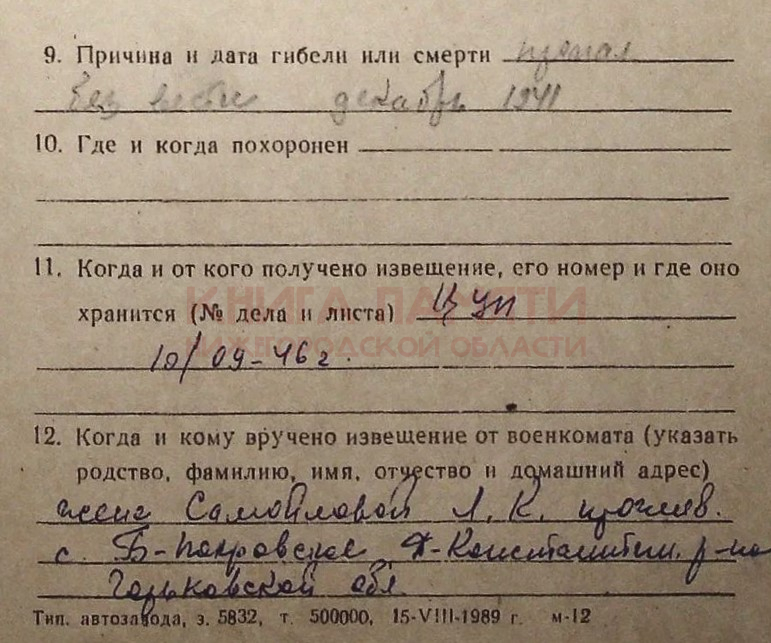 9. Причина и дата гибели или смерти пропал
без вести декабрь 1941
10. Где и когда похоронен
11. Когда и от кого получено извещение, его номер и где оно
КНИГА ПАМЯТИ
хранится (№ дела и листа) ЦУП
НИЖЕГОРОДСКОЙ ОБЛАСТИ
10/09-46 г.
12. Когда и кому вручено извещение от военкомата (указать
родство, фамилию, имя, отчество и домашний адрес)
жене Самойловой Л. К. прожив.
с. Б-Покровское Д-Константин. р-на
Горьковской обл.
Тип. автозавода, з. 5832, т. 500000, 15-VIII-1989 г. м-12